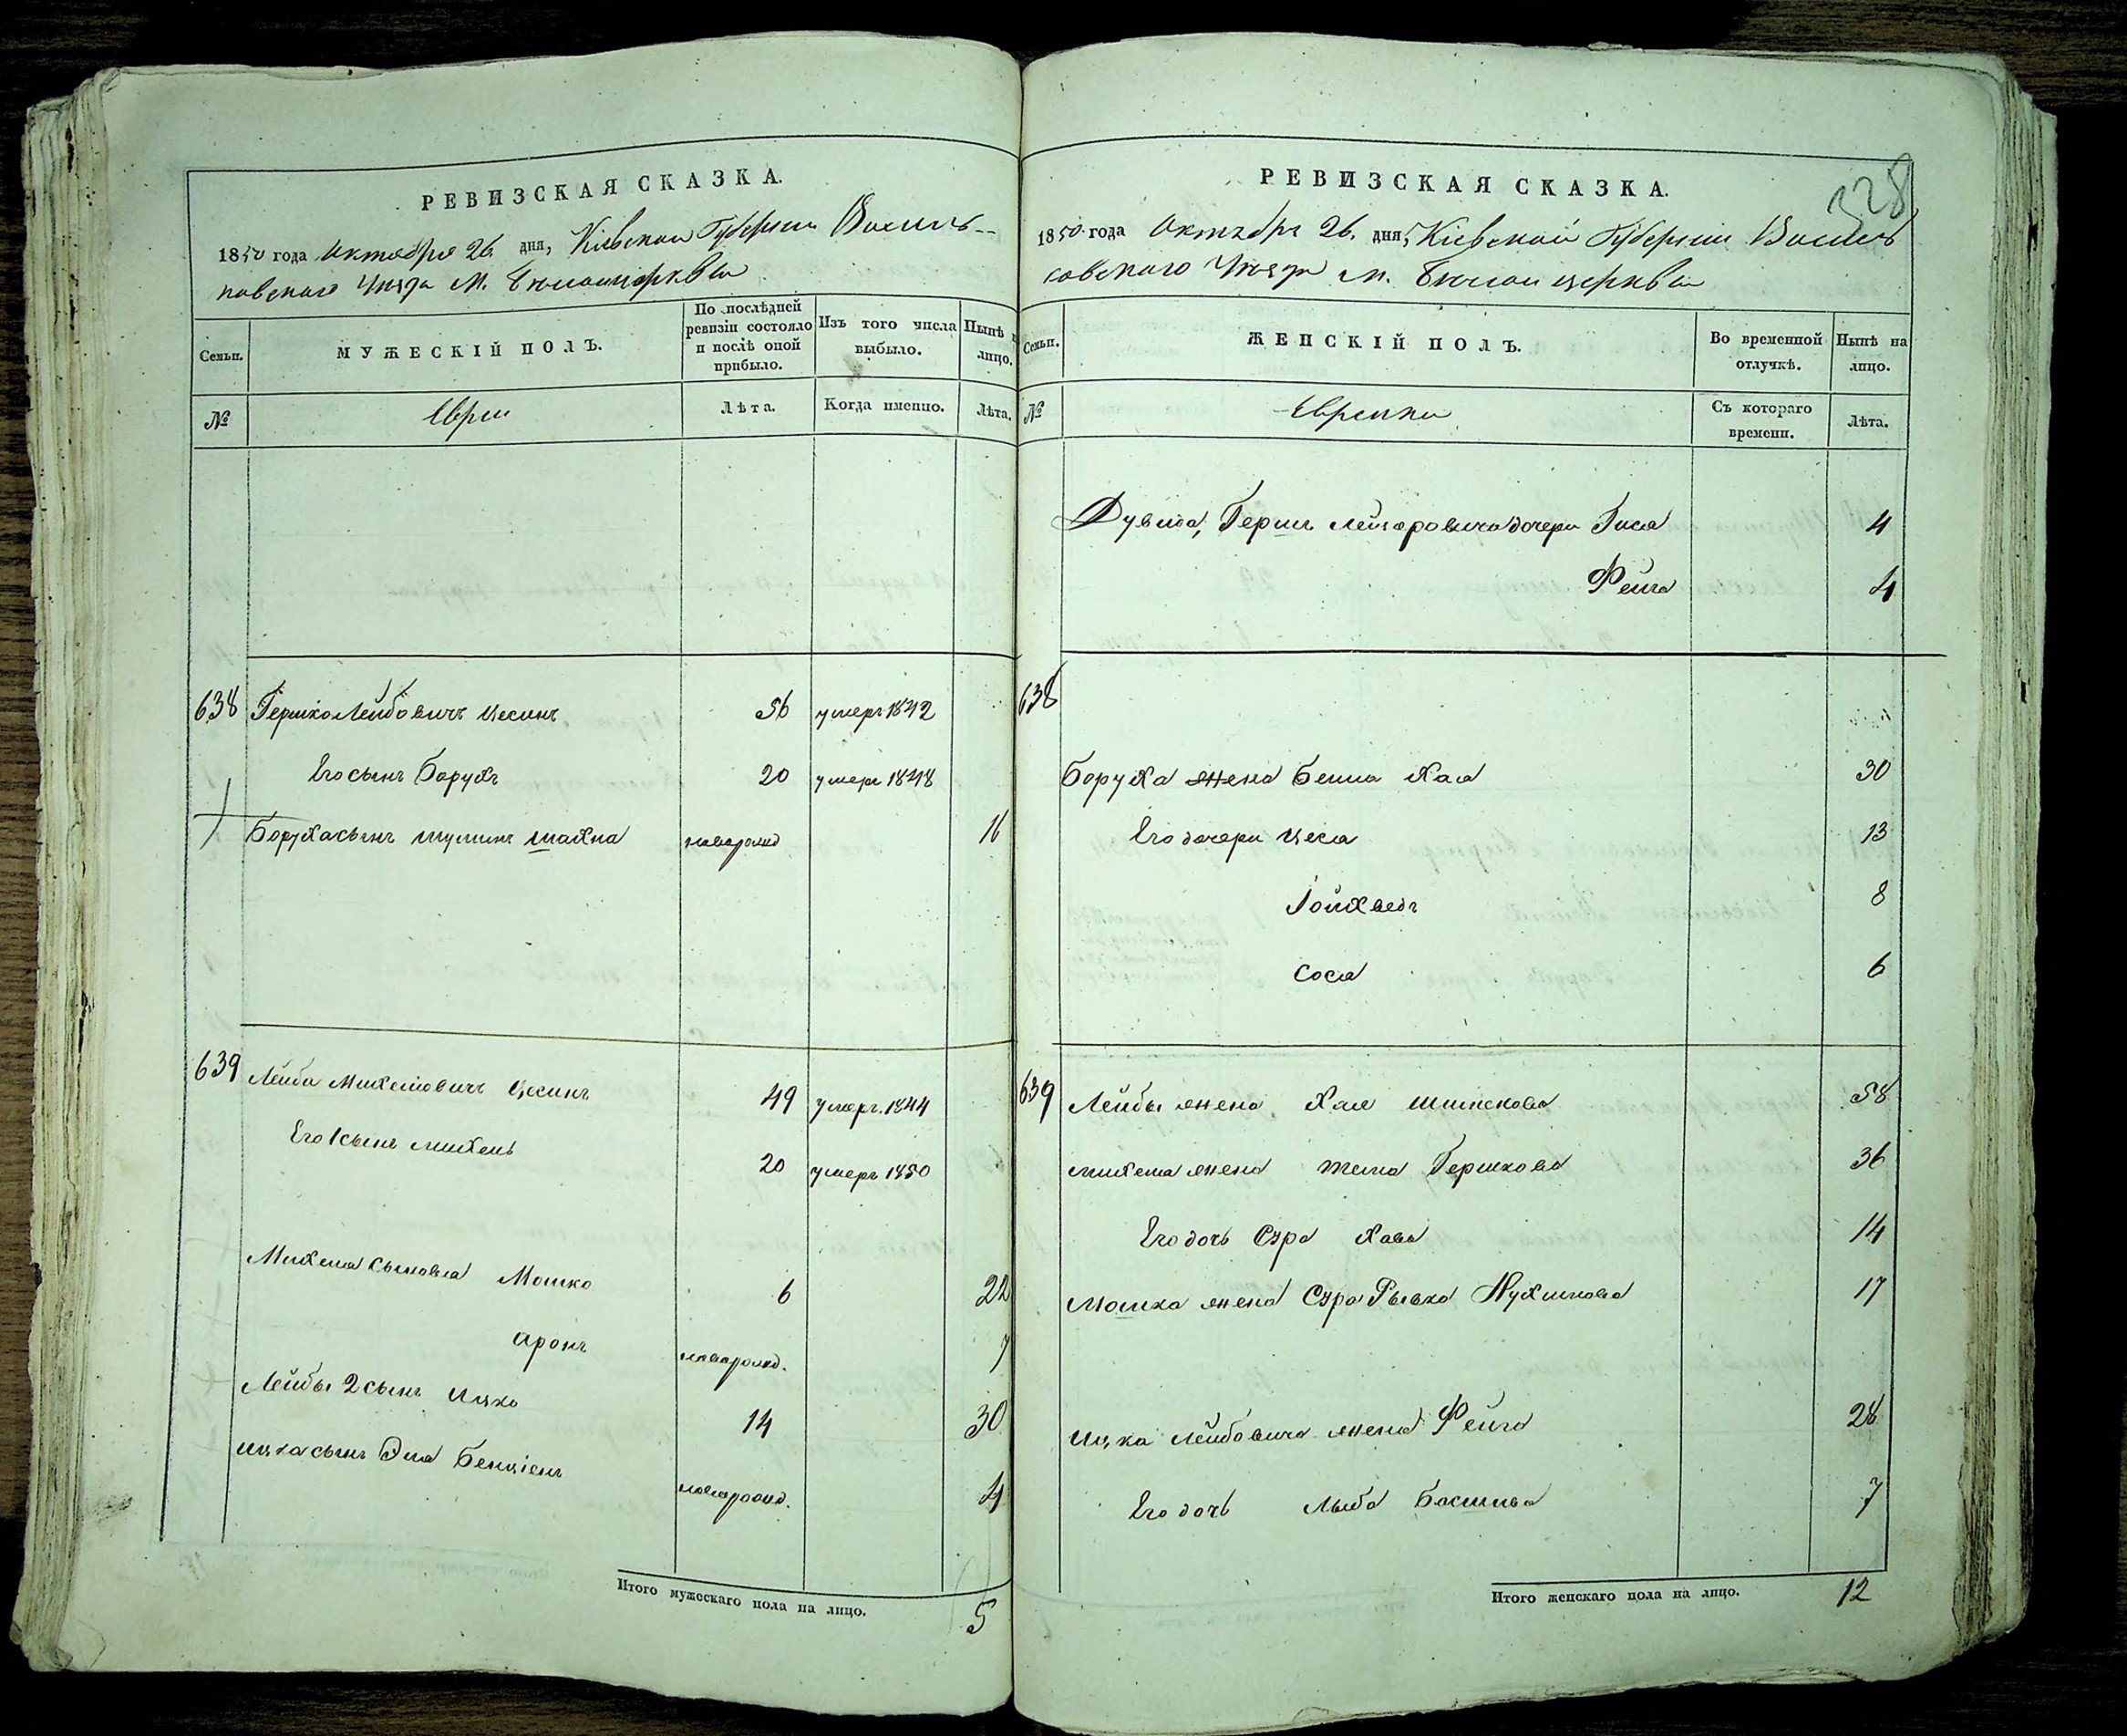 РЕВИЗСКАЯ СКАЗКА.
1850 года Октября 26 дня, Кіевской Губерніи Василь-
ковскаго Уезда М. Белойцеркви
Семьи.
МУЖЕСКІЙ ПОЛЪ.
По послѣдней ревизіи состояло и послѣ оной прибыло.
Изъ того числа выбыло.
Нынѣ на лицо.
№
Евреи
Лѣта.
Когда именно.
Лѣта.
638 Гершко Лейбовичъ Цесинъ 56 умеръ 1842
Его сынъ Борухъ 20 умеръ 1848
Боруха сынъ Шулимъ Шахна новорожд 16
639 Лейба Михелёвичъ Цесинъ 49 умеръ. 1844
Его 1 сынъ Михель 20 умеръ 1850
Михеля сыновья Мошко 6 22
Аронъ новорожд. 7
Лейбы 2 сынъ Ицко 14 30
Ицка сынъ Эля Бенціонъ новорожд. 4
Итого мужескаго пола на лицо. 5
328
РЕВИЗСКАЯ СКАЗКА.
1850 года Октября 26. дня, Кіевской Губерніи Василь
ковскаго Уезда м. Белой церкви
Семьи.
ЖЕНСКІЙ ПОЛЪ.
Во временной отлучкѣ.
Нынѣ на лицо.
№
Еврейки
Съ котораго времени.
Лѣта.
Дувида, Герша Лейзеровича дочери Гися 4
Фейга 4
638
Боруха жена Бейла Хая 30
Его дочери Цеся 13
Ройхведъ 8
Сося 6
639 Лейбы жена Хая 58
Михеля жена Гершкова 36
Его дочь Сура Хава 14
Мошка жена Сура Рывка Нухимова 17
Ицка Лейбовича жена Фейга 28
Его дочь Лыба Басшива 7
Итого женскаго пола на лицо. 12